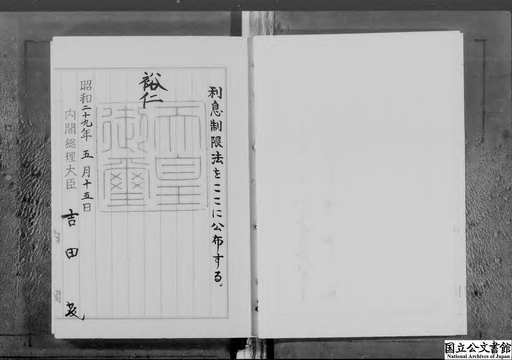 利息制限法をここに公布する。
裕仁
天皇御璽
昭和二十九年五月十五日
内閣総理大臣 吉田茂
国立公文書館
National Archives of Japan